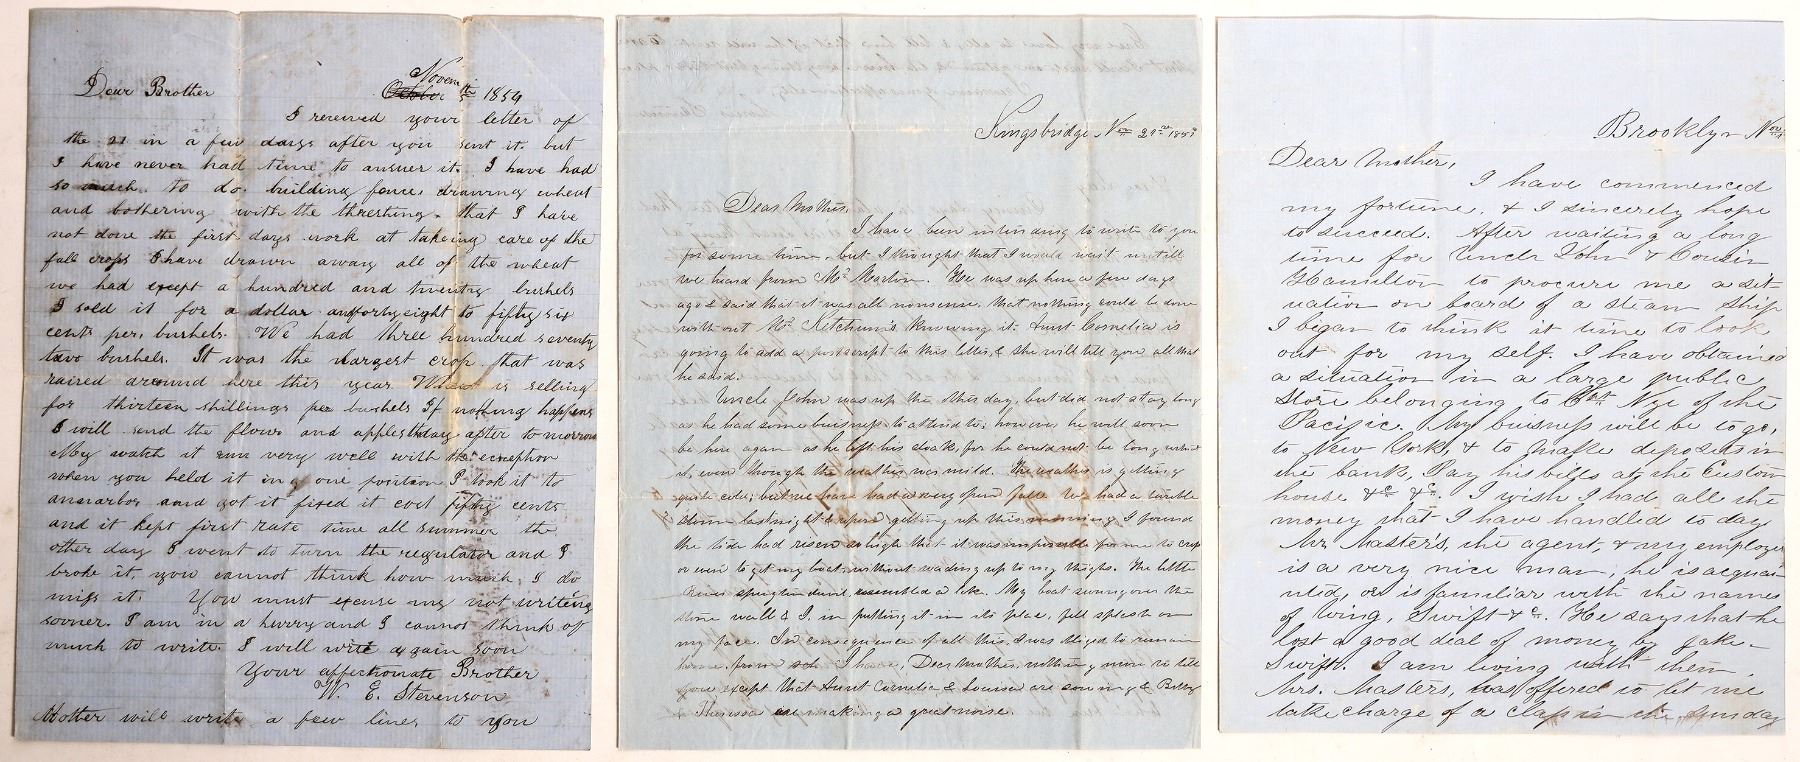 Novem
Dear Brother October 5th 1854
I received your letter of
the 21 in a few days after you sent it. but
I have never had time to answer it. I have had
so much to do. building fence, drawing wheat
and bothering with the threshing. that I have
not done the first days work at takeing care of the
fall crops I have drawn away all of the wheat
we had except a hundred and twenty bushels
I sold it for a dollar and forty eight to fifty six
cents per, bushels. We had three hundred seventy
two bushels. It was the largest crop that was
raised around here this year Wheat is selling
for thirteen shillings per bushels If nothing happens
I will send the flour and apples day after to morrow
My watch it run very well with the exception
when you held it in one position I took it to
annarbor and got it fixed it cost fifty cents
and it kept first rate time all summer the
other day I went to turn the regulator and I
broke it, you cannot think how much I do
miss it. You must excuse my not writeing
sooner. I am in a hurry and I cannot think of
much to write. I will write again soon
Your affectionate Brother
W. E. Stevenson
Mother will write a few lines to you
Kingsbridge Nov 21st
Dear Mother,
I have been intending to write to you
for some time, but I thought that I would wait untill
we heard from Mr Martin. He was up here a few days
ago & said that it was all nonsense, that nothing could be done
with out Mr Ketchum's knowing it. Aunt Cornelia is
going to add a postscript to this letter, & she will tell you all that
he said.
Uncle John was up the this day, but did not stay long
as he had some buisness to attend to; however he will soon
be here again as he left his cloak, for he could not be long without
it, even though the weather was mild. The weather is getting
quite cold; but we have had a very open fall. We had a terrible
storm last night & upon getting up this morning I found
the tide had risen so high that it was impossible for me to cross
or even to get my boat without wading up to my thighs. The little
River spuyten duvil resembled a lake. My boat swung over the
stone wall & I, in putting it in its place, fell splash on
my face. In consequence of all this I was obliged to remain
home from I have, Dear Mother, nothing more to tell
you except that Aunt Cornelia & Louisa are sewing & Bettsy
Theressa are making a great noise.
Brooklyn Nov
Dear Mother,
I have commenced
my fortune, & I sincerely hope
to succeed. After waiting a long
time for Uncle John & Cousin
Hamilton to procure me a sit-
uation on board of a steam ship
I began to think it time to look
out for my self. I have obtained
a situation in a large public
store belonging to Capt Nye of the
Pacific. My buisness will be to go,
to New York, & to make deposits in
the bank, Pay his bills at the Custom
house &c &c. I wish I had all the
money that I have handled to day
Mr Master's, the agent, & my employer
is a very nice man; he is acquai-
nted, or is familiar with the names
of King, Swift &c. He says that he
lost a good deal of money by Jake
Swift. I am living with them
Mrs. Masters, has offered to let me
take charge of a class in the Sunday